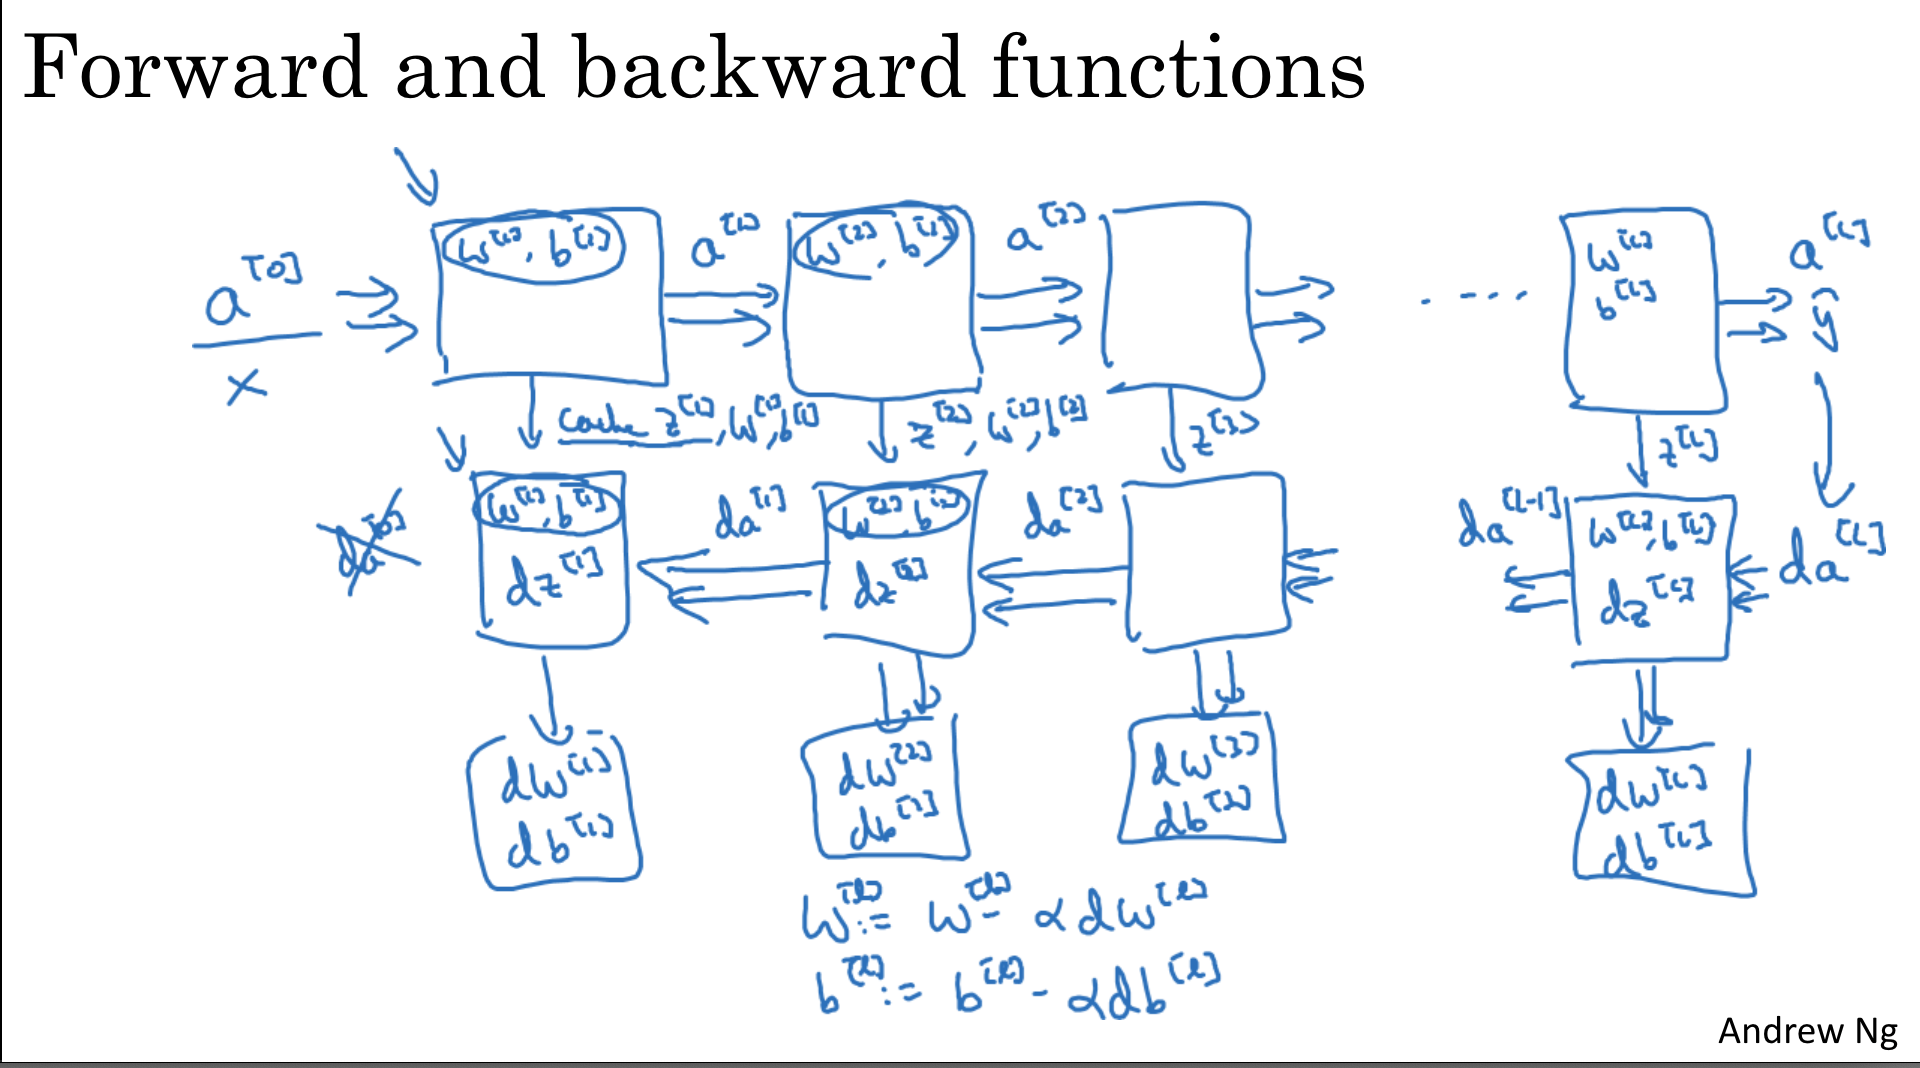 Forward and backward functions
a^[0]
x
w^[1], b^[1]
a^[1]
w^[2], b^[2]
a^[2]
....
w^[L]
b^[L]
a^[L]
ŷ
cache z^[1], w^[1], b^[1]
z^[2], w^[2], b^[2]
z^[3]
z^[L]
da^[0]
w^[1], b^[1]
dz^[1]
da^[1]
w^[2], b^[2]
dz^[2]
da^[2]
da^[L-1]
w^[L], b^[L]
dz^[L]
da^[L]
dw^[1]
db^[1]
dw^[2]
db^[2]
dw^[3]
db^[3]
dw^[L]
db^[L]
w^[l] := w^[l] - αdw^[l]
b^[l] := b^[l] - αdb^[l]
Andrew Ng